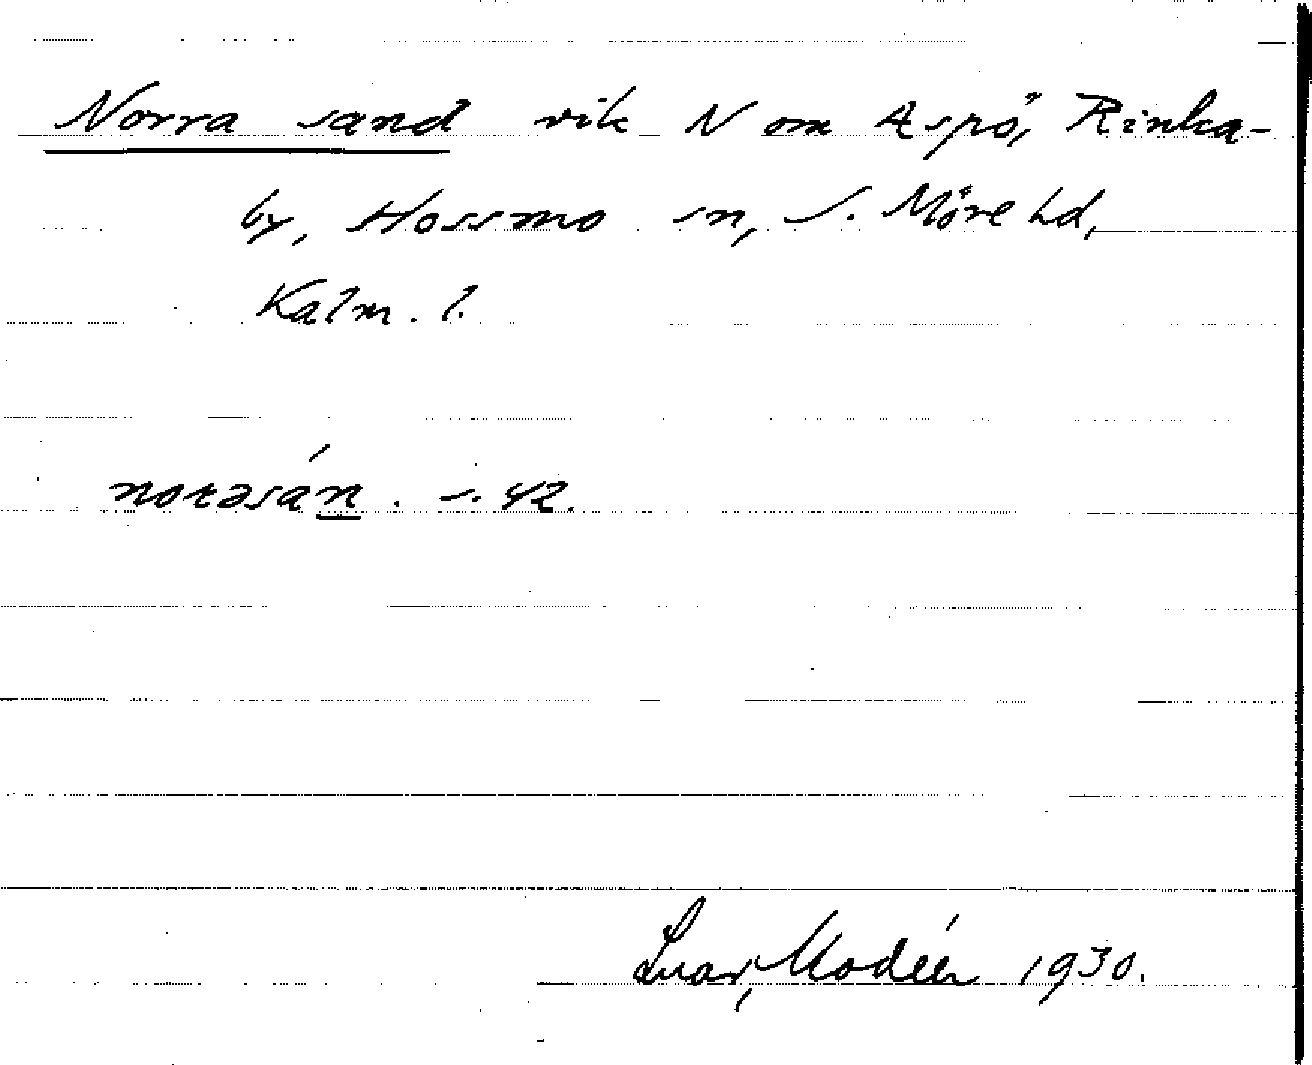 Norra sand vik N om Aspö, Rinka-
by, Hossmo sn, S. Möre hd,
Kalm. l.
norəsán. s. 42.
Ivar Modéer 1930.